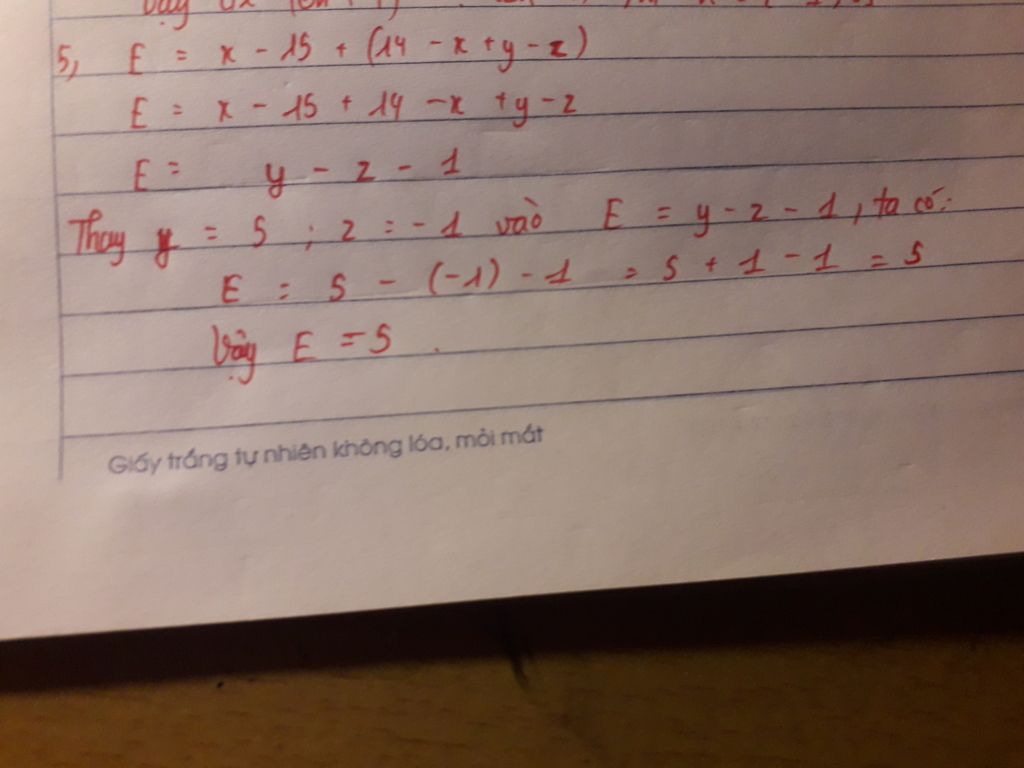 5, E = x - 15 + (14 - x + y - z)
E = x - 15 + 14 - x + y - z
E = y - z - 1
Thay y = 5 ; z = -1 vào E = y - z - 1, ta có:
E = 5 - (-1) - 1 = 5 + 1 - 1 = 5
Vậy E = 5.
Giấy trắng tự nhiên không lóa, mỏi mắt